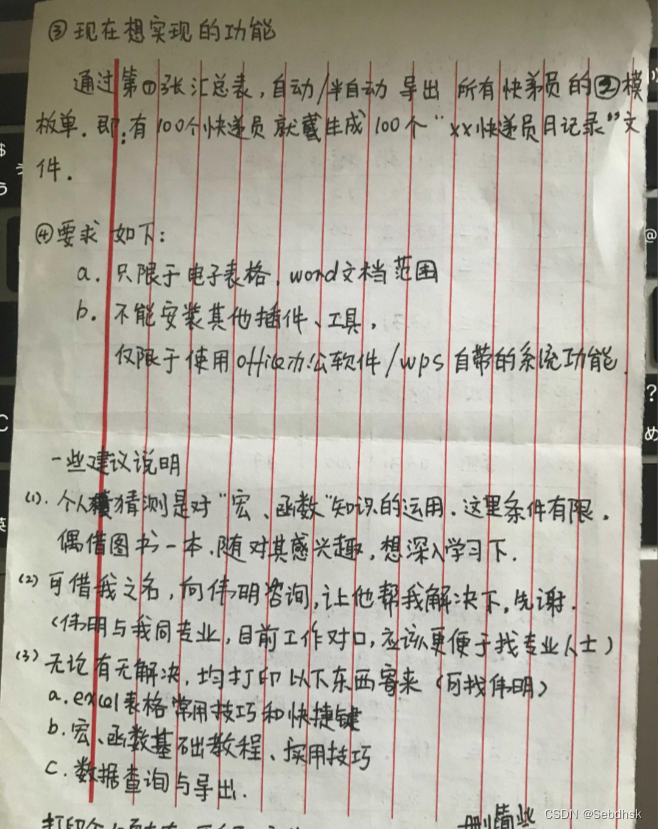 ③现在想实现的功能
通过第①张汇总表,自动/半自动 导出 所有快递员的②模
板单.即:有100个快递员就生成100个“xx快递员日记录”文
件.
④要求 如下:
a. 只限于电子表格、word文档范围
b. 不能安装其他插件、工具,
仅限于使用office办公软件/wps自带的系统功能.
一些建议说明
(1). 个人猜测是对“宏、函数”知识的运用.这里条件有限,
偶借图书一本,随对其感兴趣,想深入学习下.
(2) 可借我之名,向伟明咨询,让他帮我解决下,先谢.
(伟明与我同专业,目前工作对口,应该更便于找专业人士)
(3) 无论有无解决,均打印以下东西寄来(可找伟明)
a.excel表格常用技巧和快捷键
b.宏、函数基础教程、实用技巧
c.数据查询与导出.
CSDN @Sebdhsk